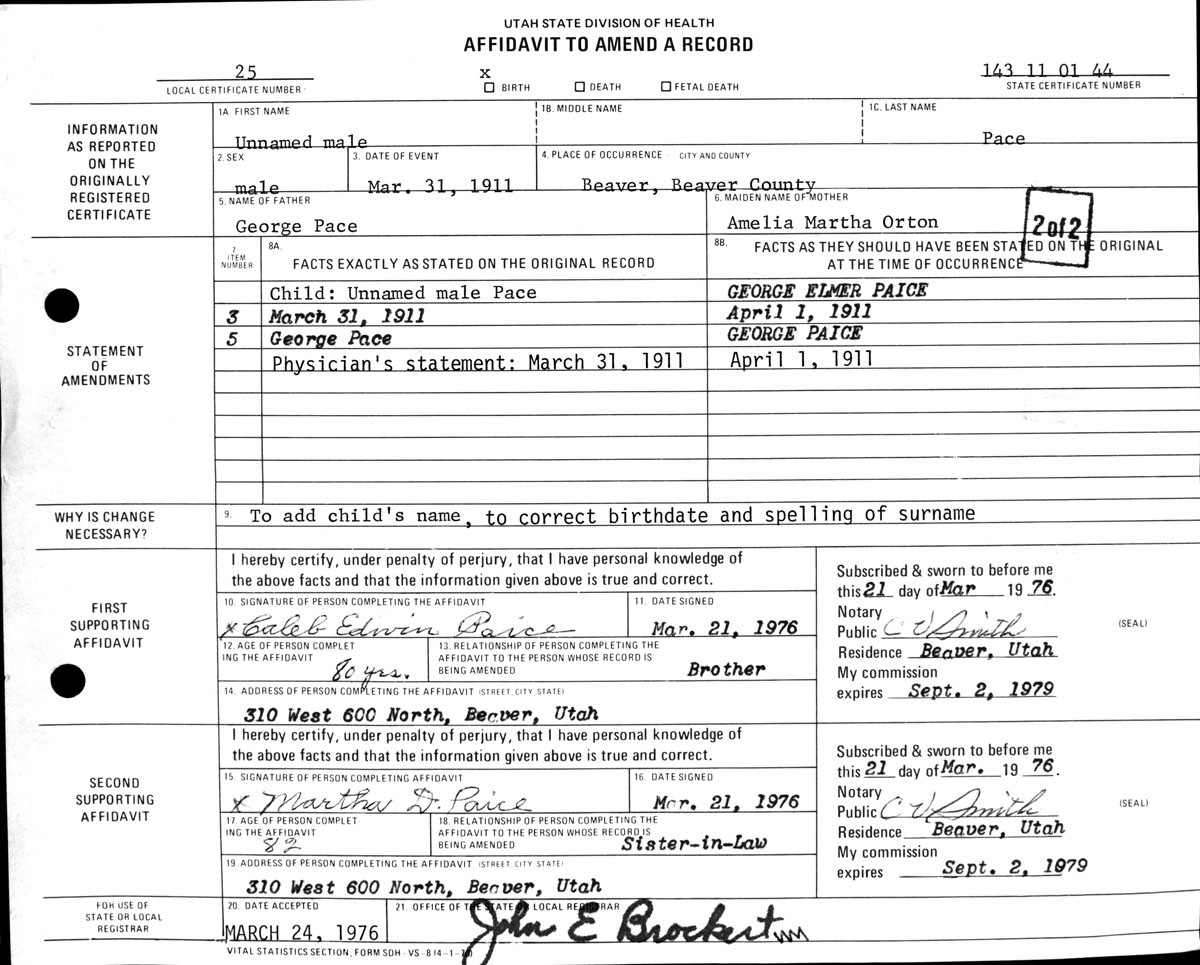 UTAH STATE DIVISION OF HEALTH
AFFIDAVIT TO AMEND A RECORD
25
LOCAL CERTIFICATE NUMBER
X
☐ BIRTH ☐ DEATH ☐ FETAL DEATH
143 11 01 44
STATE CERTIFICATE NUMBER
INFORMATION
AS REPORTED
ON THE
ORIGINALLY
REGISTERED
CERTIFICATE
1A. FIRST NAME 1B. MIDDLE NAME 1C. LAST NAME
Unnamed male Pace
2. SEX 3. DATE OF EVENT 4. PLACE OF OCCURRENCE CITY AND COUNTY
male Mar. 31, 1911 Beaver, Beaver County
5. NAME OF FATHER 6. MAIDEN NAME OF MOTHER
George Pace Amelia Martha Orton
2 of 2
STATEMENT
OF
AMENDMENTS
7
ITEM
NUMBER
8A.
FACTS EXACTLY AS STATED ON THE ORIGINAL RECORD
8B. FACTS AS THEY SHOULD HAVE BEEN STATED ON THE ORIGINAL
AT THE TIME OF OCCURRENCE
Child: Unnamed male Pace GEORGE ELMER PAICE
3 March 31, 1911 April 1, 1911
5 George Pace GEORGE PAICE
Physician's statement: March 31, 1911 April 1, 1911
WHY IS CHANGE
NECESSARY?
9. To add child's name, to correct birthdate and spelling of surname
FIRST
SUPPORTING
AFFIDAVIT
I hereby certify, under penalty of perjury, that I have personal knowledge of
the above facts and that the information given above is true and correct.
10. SIGNATURE OF PERSON COMPLETING THE AFFIDAVIT 11. DATE SIGNED
x Caleb Edwin Paice Mar. 21, 1976
12. AGE OF PERSON COMPLET
ING THE AFFIDAVIT
80 yrs.
13. RELATIONSHIP OF PERSON COMPLETING THE
AFFIDAVIT TO THE PERSON WHOSE RECORD IS
BEING AMENDED Brother
14. ADDRESS OF PERSON COMPLETING THE AFFIDAVIT (STREET, CITY, STATE)
310 West 600 North, Beaver, Utah
Subscribed & sworn to before me
this 21 day of Mar 19 76.
Notary
Public C V Smith
(SEAL)
Residence Beaver, Utah
My commission
expires Sept. 2, 1979
SECOND
SUPPORTING
AFFIDAVIT
I hereby certify, under penalty of perjury, that I have personal knowledge of
the above facts and that the information given above is true and correct.
15. SIGNATURE OF PERSON COMPLETING AFFIDAVIT 16. DATE SIGNED
x Martha D. Paice Mar. 21, 1976
17. AGE OF PERSON COMPLET-
ING THE AFFIDAVIT
82
18. RELATIONSHIP OF PERSON COMPLETING THE
AFFIDAVIT TO THE PERSON WHOSE RECORD IS
BEING AMENDED Sister-in-Law
19. ADDRESS OF PERSON COMPLETING THE AFFIDAVIT (STREET, CITY STATE)
310 West 600 North, Beaver, Utah
Subscribed & sworn to before me
this 21 day of Mar. 19 76.
Notary
Public C V Smith
(SEAL)
Residence Beaver, Utah
My commission
expires Sept. 2, 1979
FOR USE OF
STATE OR LOCAL
REGISTRAR
20. DATE ACCEPTED 21. OFFICE OF THE STATE OR LOCAL REGISTRAR
MARCH 24, 1976 John E Brockert
VITAL STATISTICS SECTION, FORM SDH-VS-8 (4-1-